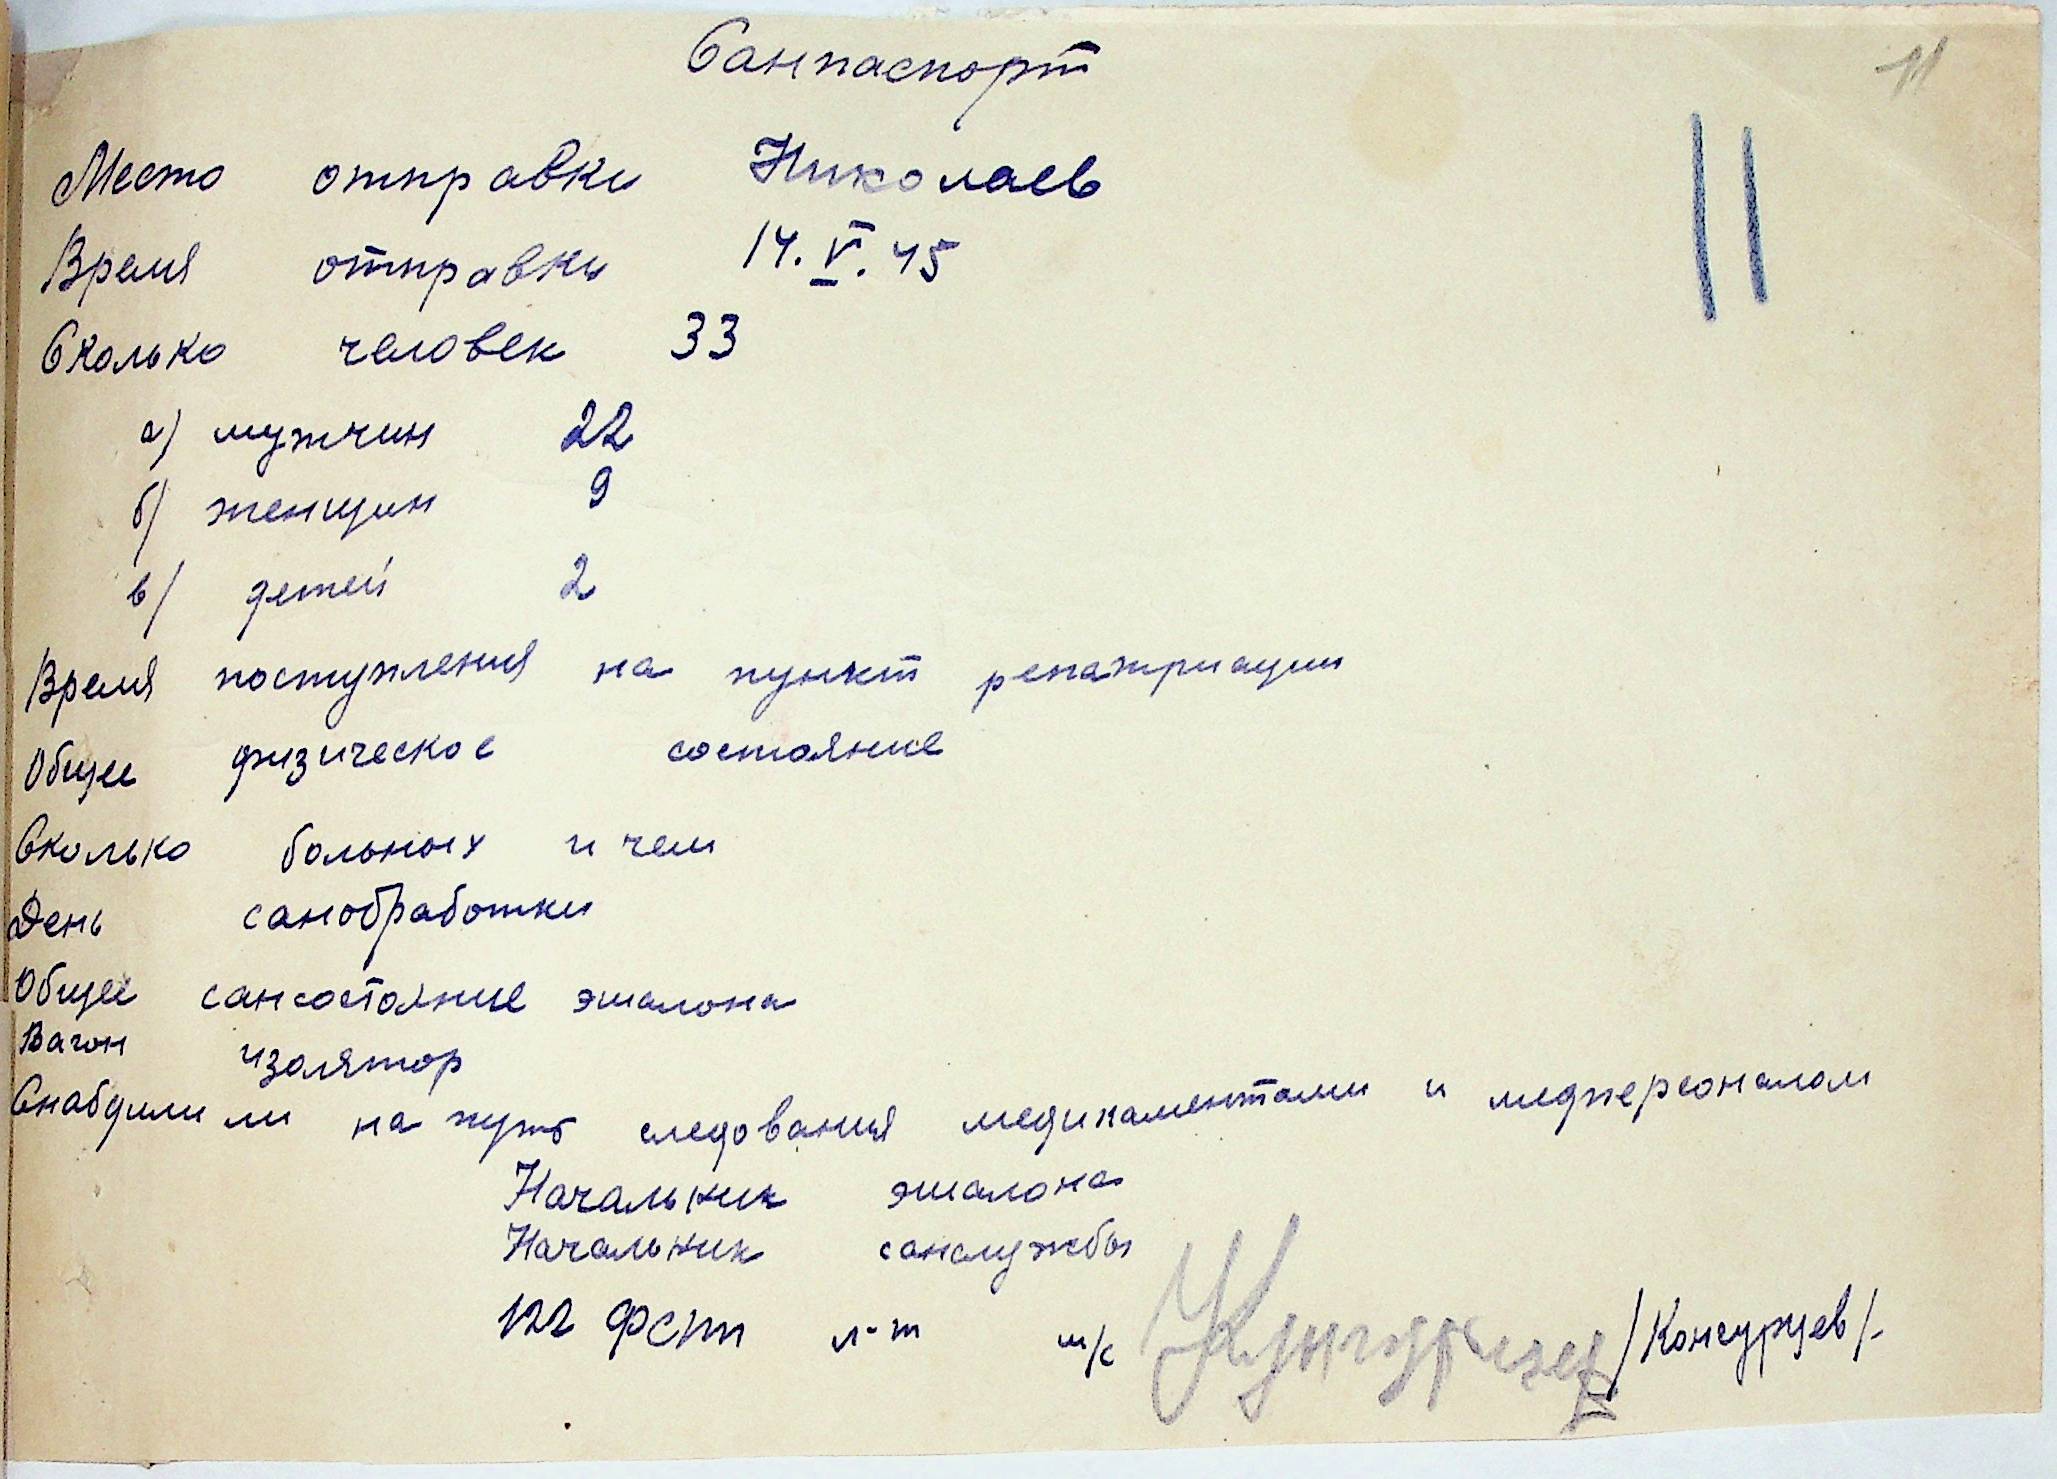 11
Санпаспорт
11
Место отправки Николаев
Время отправки 14.V.45
Сколько человек 33
а/ мужчин 22
б/ женщин 9
в/ детей 2
Время поступления на пункт репатриации
Общее физическое состояние
Сколько больных и чем
День санобработки
Общее сансостояние эшалона
Вагон изолятор
Снабдили ли на путь следования медикаментами и медперсоналом
Начальник эшалона
Начальник санслужбы
122 ФСПП л-т м/с /Конгурцев/-